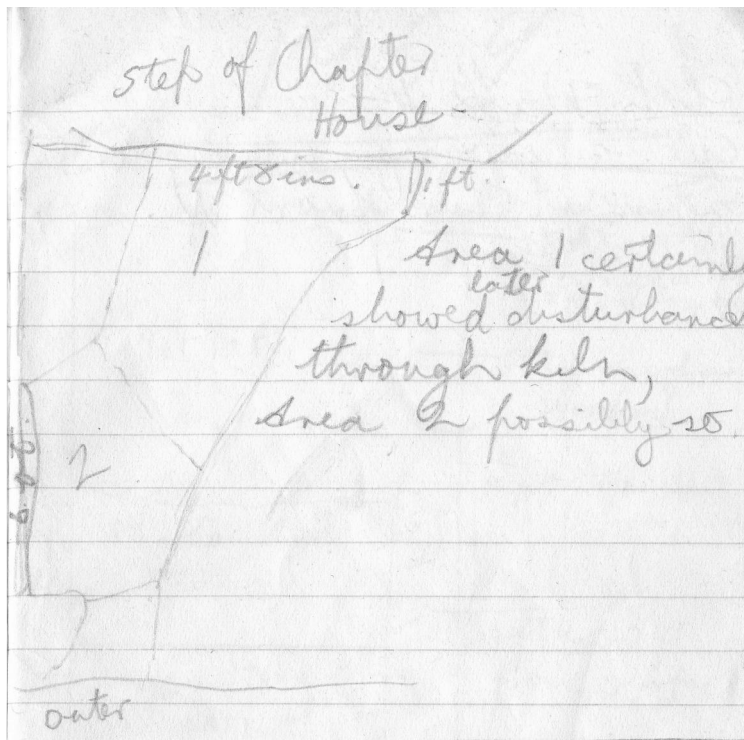 Step of Chapter
House
4ft 8ins. 1ft.
1
Area 1 certainly
later
showed disturbance
through kiln,
Area 2 possibly so.
2
outer